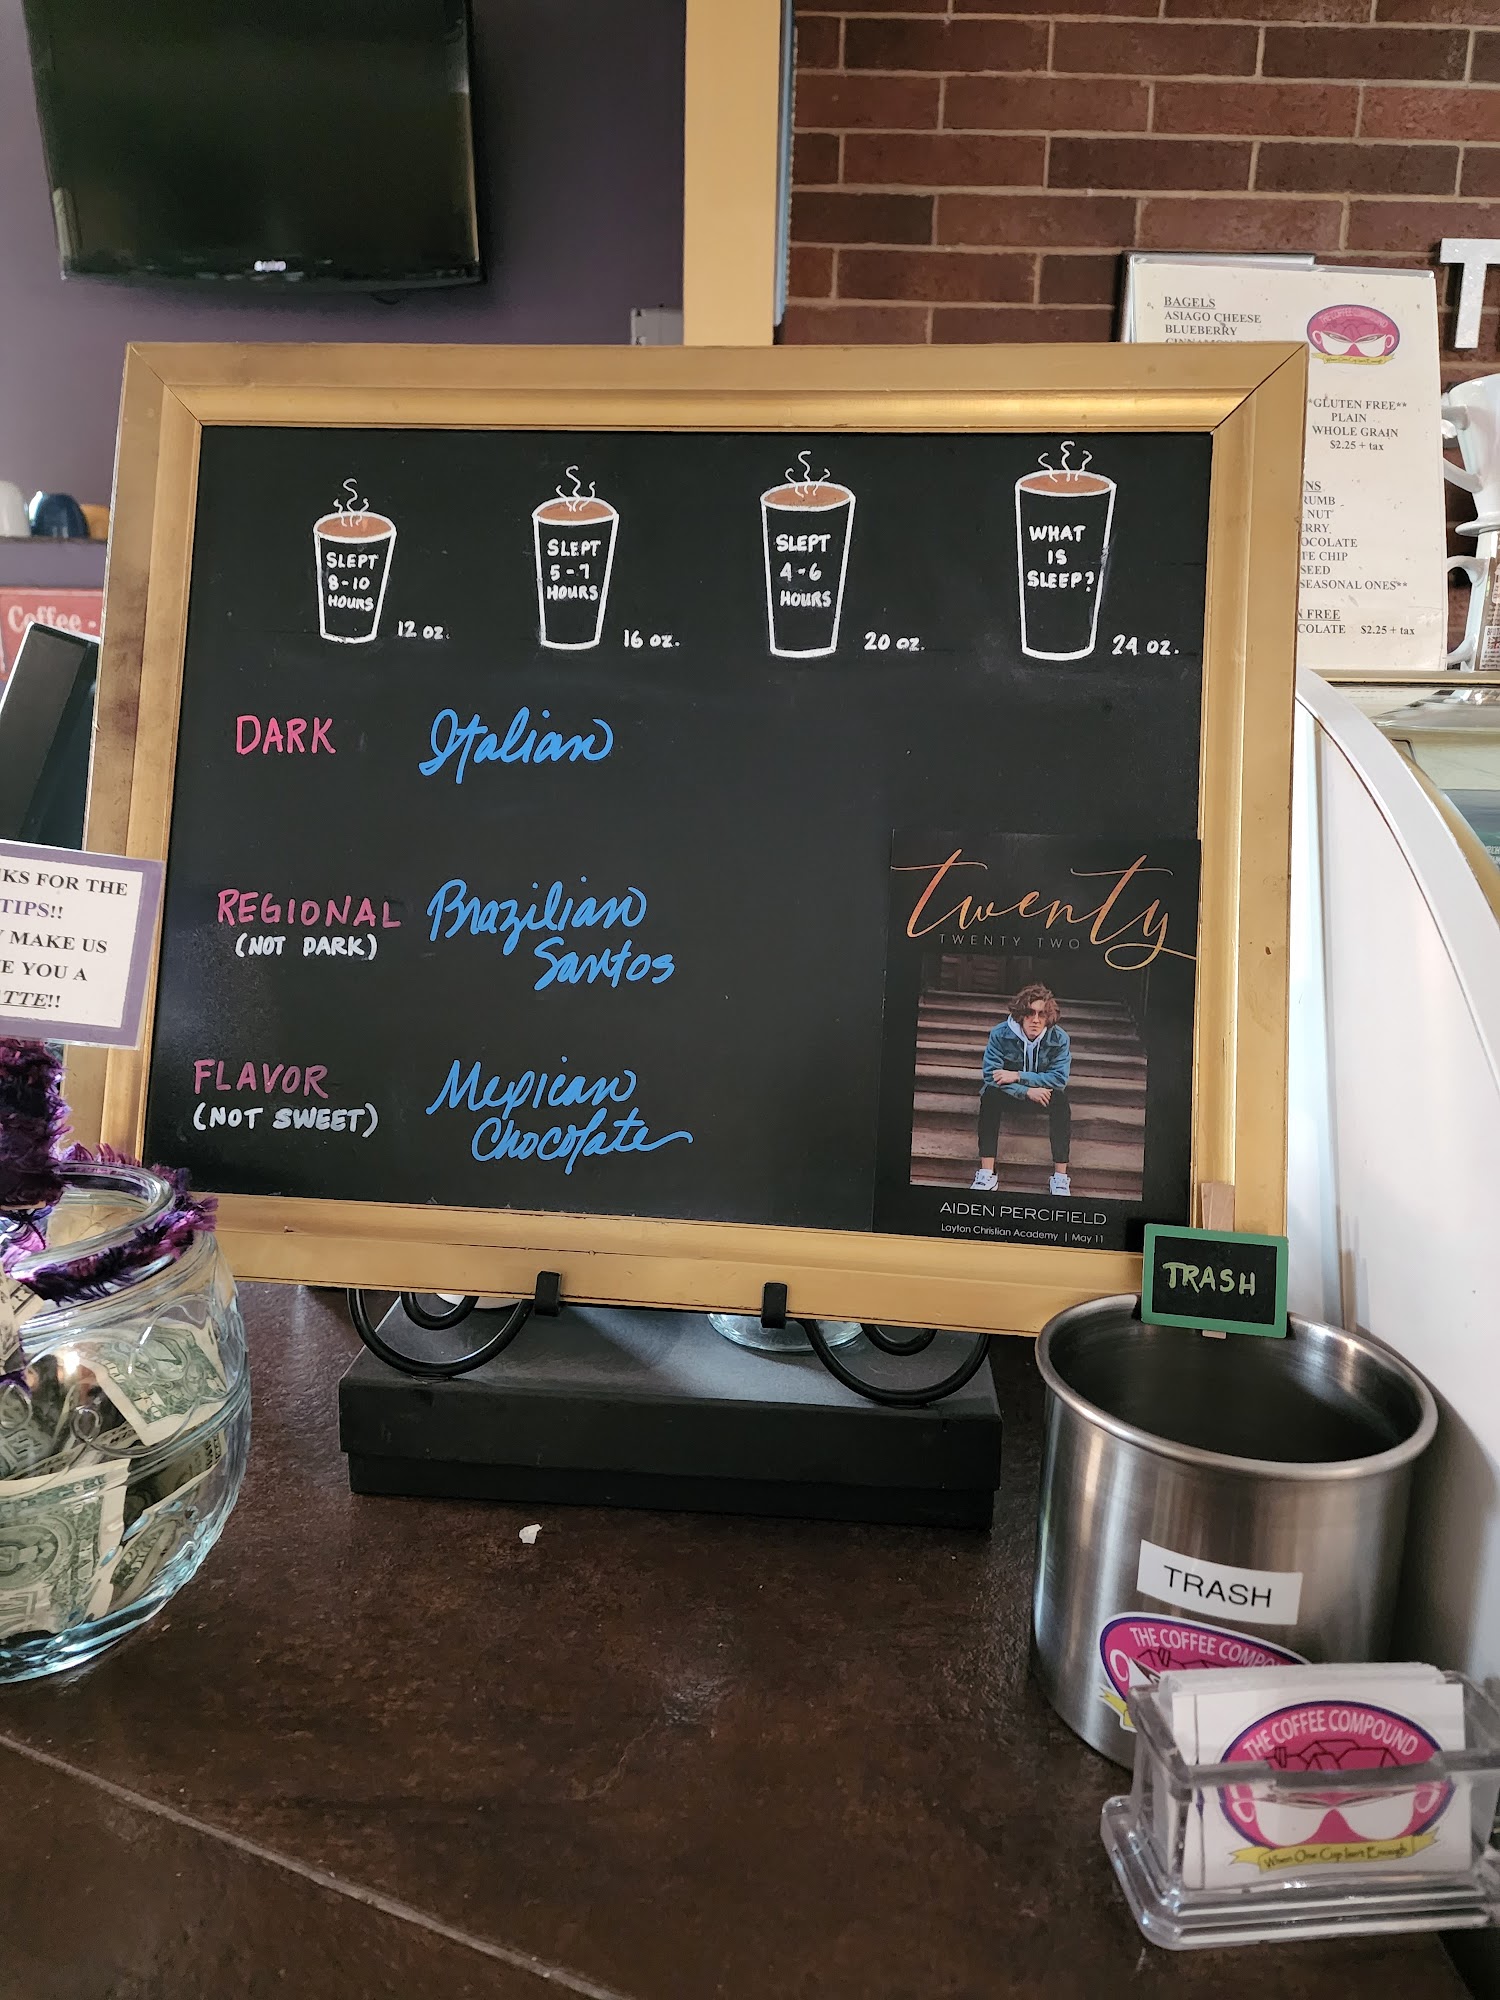 SANYO
BAGELS
ASIAGO CHEESE
BLUEBERRY
THE COFFEE COMPOUND
*GLUTEN FREE**
PLAIN
WHOLE GRAIN
$2.25 + tax
NS
RUMB
NUT
ERRY
OCOLATE
TE CHIP
SEED
SEASONAL ONES**
N FREE
COLATE $2.25 + tax
T
Coffee -
SLEPT
8-10
HOURS
12 OZ.
SLEPT
5-7
HOURS
16 OZ.
SLEPT
4-6
HOURS
20 OZ.
WHAT
IS
SLEEP?
24 OZ.
DARK Italian
REGIONAL Brazilian
(NOT DARK) Santos
FLAVOR Mexican
(NOT SWEET) Chocolate
twenty
TWENTY TWO
AIDEN PERCIFIELD
Layton Christian Academy | May 11
KS FOR THE
TIPS!!
Y MAKE US
E YOU A
ATTE!!
TRASH
TRASH
THE COFFEE COMPO
THE COFFEE COMPOUND
When One Cup Isn't Enough